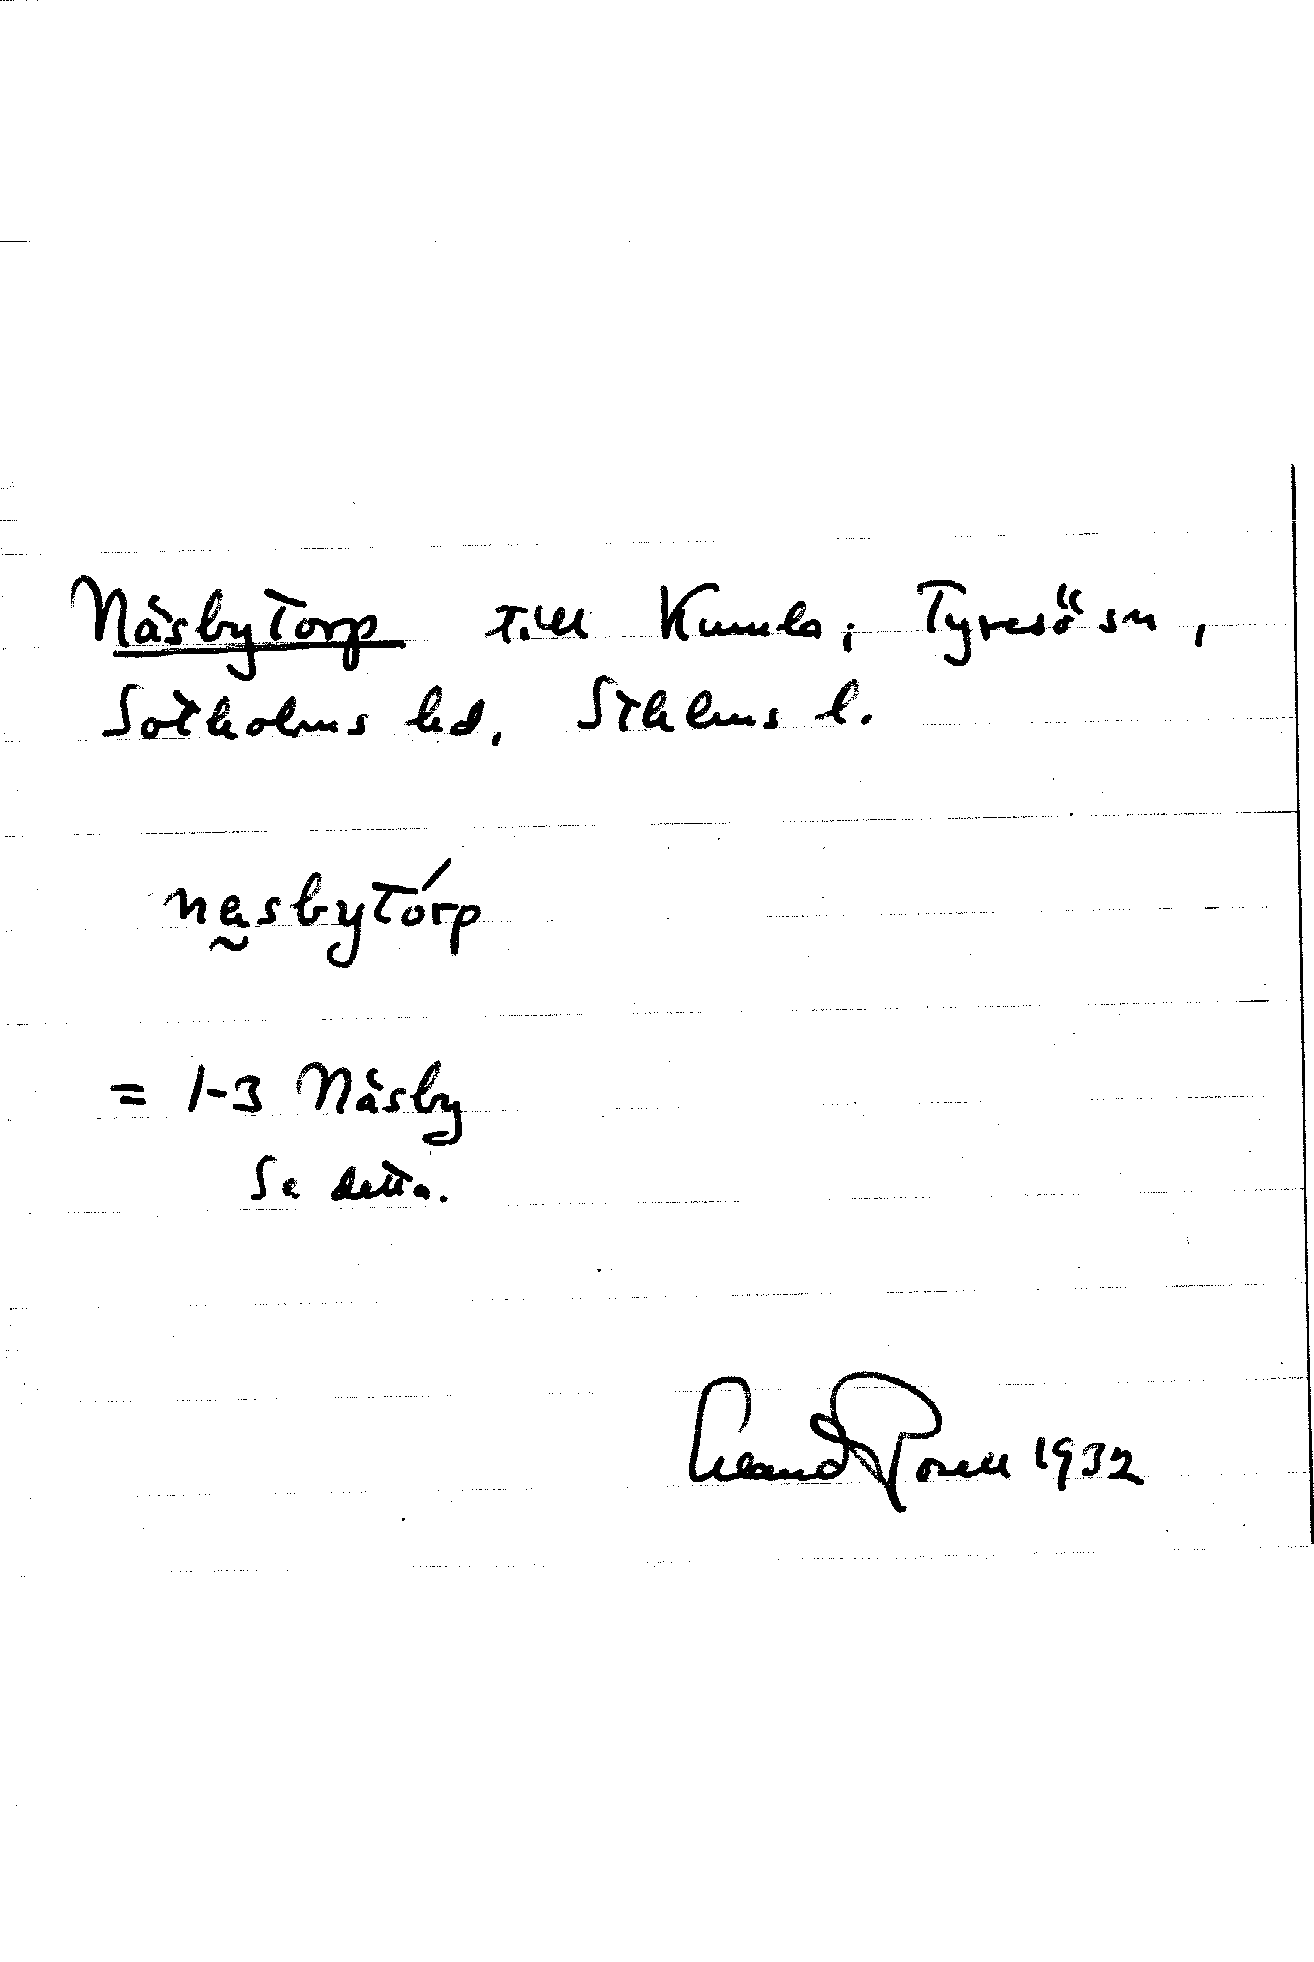 Näsbytorp till Kumla i Tyresö sn,
Sotholms hd, Sthlms l.
näsbytórp
= 1-3 Näsby
Se detta.
Erland Rosell 1932